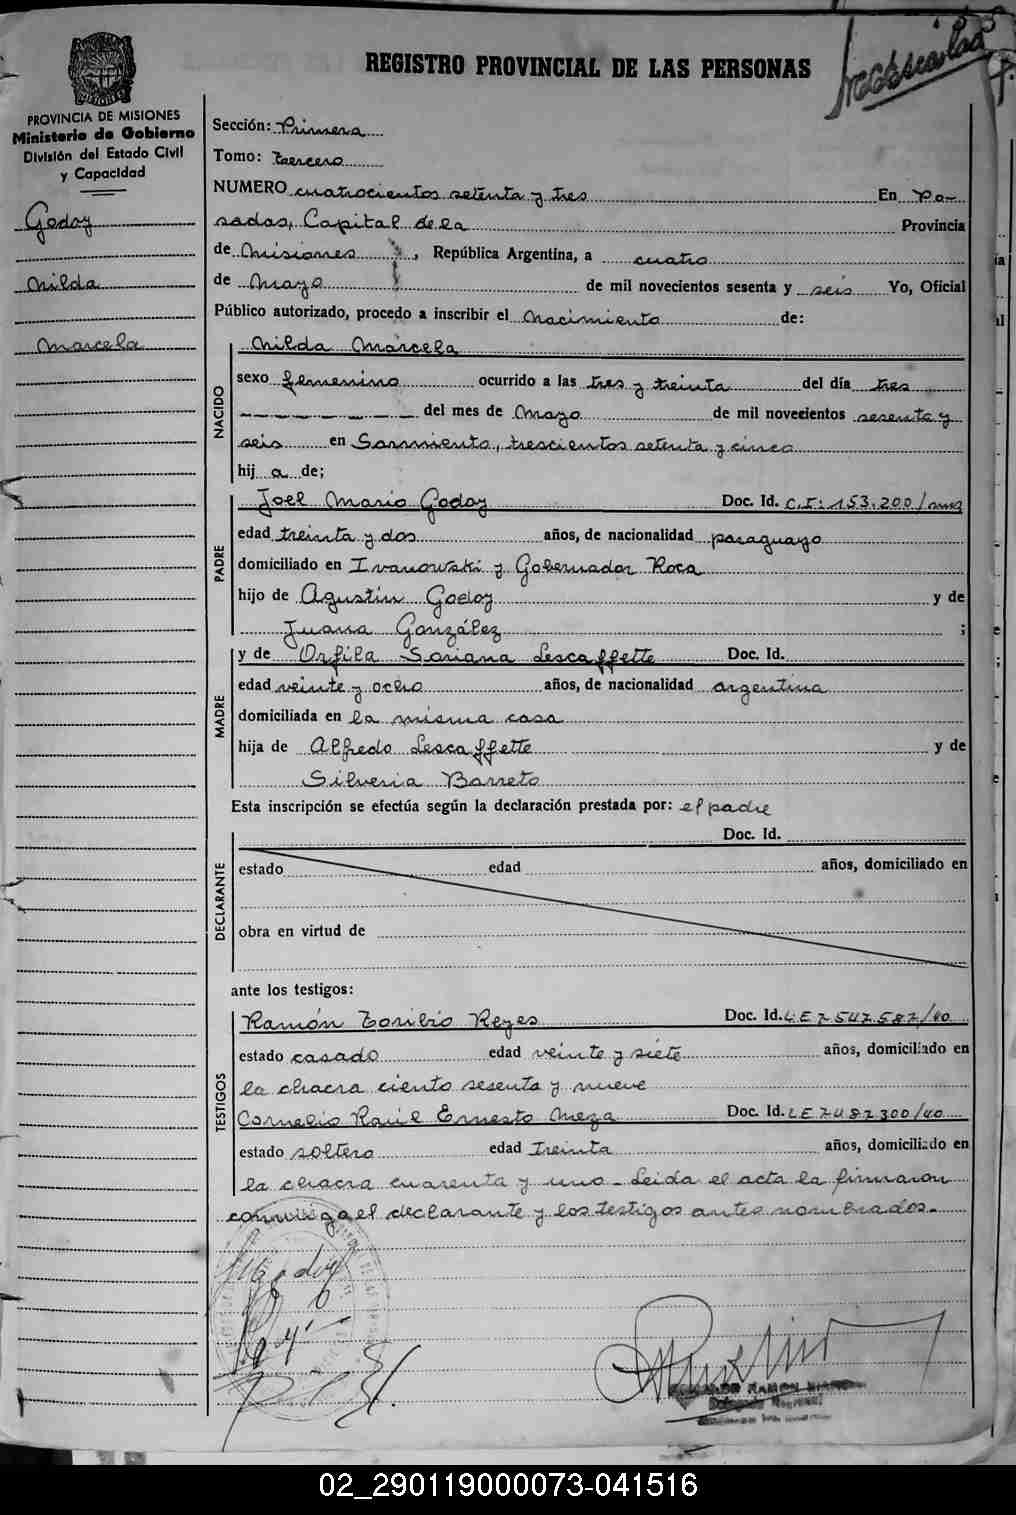 REGISTRO PROVINCIAL DE LAS PERSONAS
PROVINCIA DE MISIONES
Ministerio de Gobierno
División del Estado Civil
y Capacidad
Godoy
Nilda
Marcela
Sección: Primera
Tomo: tercero
NUMERO cuatrocientos setenta y tres En Po-
sadas, Capital de la Provincia
de Misiones, República Argentina, a cuatro
de Mayo de mil novecientos sesenta y seis Yo, Oficial
Público autorizado, procedo a inscribir el Nacimiento de:
NACIDO
Nilda Marcela
sexo femenino ocurrido a las tres y treinta del día tres
del mes de Mayo de mil novecientos sesenta y
seis en Sarmiento, trescientos setenta y cinco
hij a de;
PADRE
Joel Mario Godoy Doc. Id. C.I: 153.200/mnes
edad treinta y dos años, de nacionalidad paraguayo
domiciliado en Ivanowski y Gobernador Roca
hijo de Agustin Godoy y de
Juana González ;
MADRE
y de Orfila Soriana Lescaffette Doc. Id.
edad veinte y ocho años, de nacionalidad argentina
domiciliada en la misma casa
hija de Alfredo Lescaffette y de
Silveria Barreto
Esta inscripción se efectúa según la declaración prestada por: el padre
DECLARANTE
Doc. Id.
estado edad años, domiciliado en
obra en virtud de
ante los testigos:
TESTIGOS
Ramón Toribio Reyes Doc. Id. LE 7542587/40
estado casado edad veinte y siete años, domiciliado en
la chacra ciento sesenta y nueve
Cornelio Raúl Ernesto Meza Doc. Id. LE 7487300/40
estado soltero edad treinta años, domiciliado en
la chacra cuarenta y uno - Leida el acta la firmaron
conmigo el declarante y los testigos antes nombrados.-
02_290119000073-041516